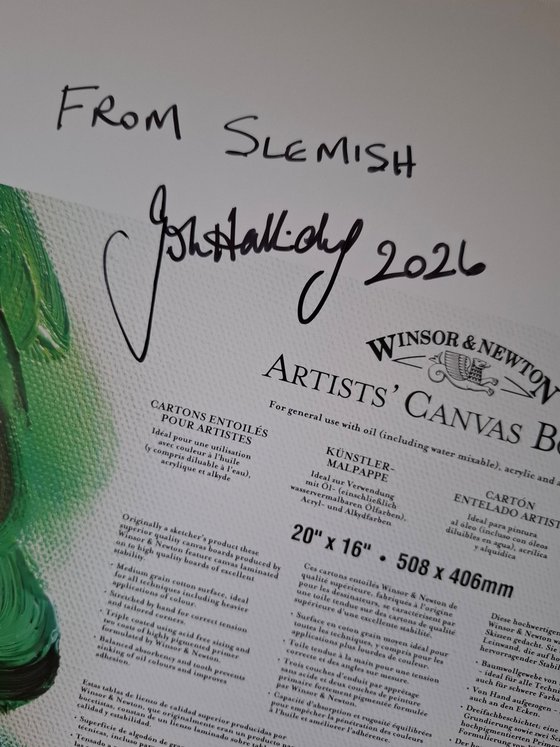 FROM SLEMISH
John Halliday 2026
WINSOR & NEWTON
ARTISTS' CANVAS
For general use with oil (including water mixable), acrylic and
CARTONS ENTOILÉS
POUR ARTISTES
Idéal pour une utilisation
avec couleur à l'huile
(y compris diluable à l'eau),
acrylique et alkyde
KÜNSTLER-
MALPAPPE
Ideal zur Verwendung
mit Öl- (einschließlich
wasservermalbaren Ölfarben),
Acryl- und Alkydfarben
CARTÓN
ENTELADO
Ideal para pintura
al óleo (incluso con óleos
diluibles en agua), acrílica
y alquídica
20" x 16" • 508 x 406mm
Originally a sketcher's product these
superior quality canvas boards produced by
Winsor & Newton feature canvas laminated
on to high quality boards of excellent
stability.
· Medium grain cotton surface, ideal
for all techniques including heavier
applications of colour.
· Stretched by hand for correct tension
and tailored corners.
· Triple coated using acid free sizing and
two coats of highly pigmented primer
formulated by Winsor & Newton.
· Balanced absorbency and tooth prevents
sinking of oil colours and improves
adhesion.
Ces cartons entoilés Winsor & Newton de
qualité supérieure, fabriqués à l'origine
pour les dessinateurs, se caractérisent par
une toile tendue sur des cartons de qualité
supérieure d'une excellente stabilité.
· Surface en coton grain moyen idéal pour
toutes les techniques, y compris pour les
applications plus lourdes de couleur.
· Toile tendue à la main pour une tension
correcte et des angles sur mesure.
· Trois couches d'enduit par apprêtage
sans acide et deux couches de peinture
primaire fortement pigmentée formulée
par Winsor & Newton.
· Capacité d'absorption et rugosité équilibrées
pour empêcher la pénétration des couleurs
à l'huile et améliorer l'adhérence.
Diese hochwertigen
Winsor & Newton
Skizzen gedacht. Sie
Leinwand, die auf
hervorragender
· Baumwollgewebe
– ideal für alle
auch für schwere
· Von Hand aufgezogen
auch an den Ecken.
· Dreifachbeschichtet,
Grundierung sowie
hochpigmentierten
Formulierung
Estas tablas de lienzo de calidad superior producidas por
Winsor & Newton, que originalmente eran un producto para
bocetistas, constan de un lienzo laminado sobre tablas de
calidad y estabilidad.
· Superficie de algodón de grano
técnicas, incluso para
· Tensado a